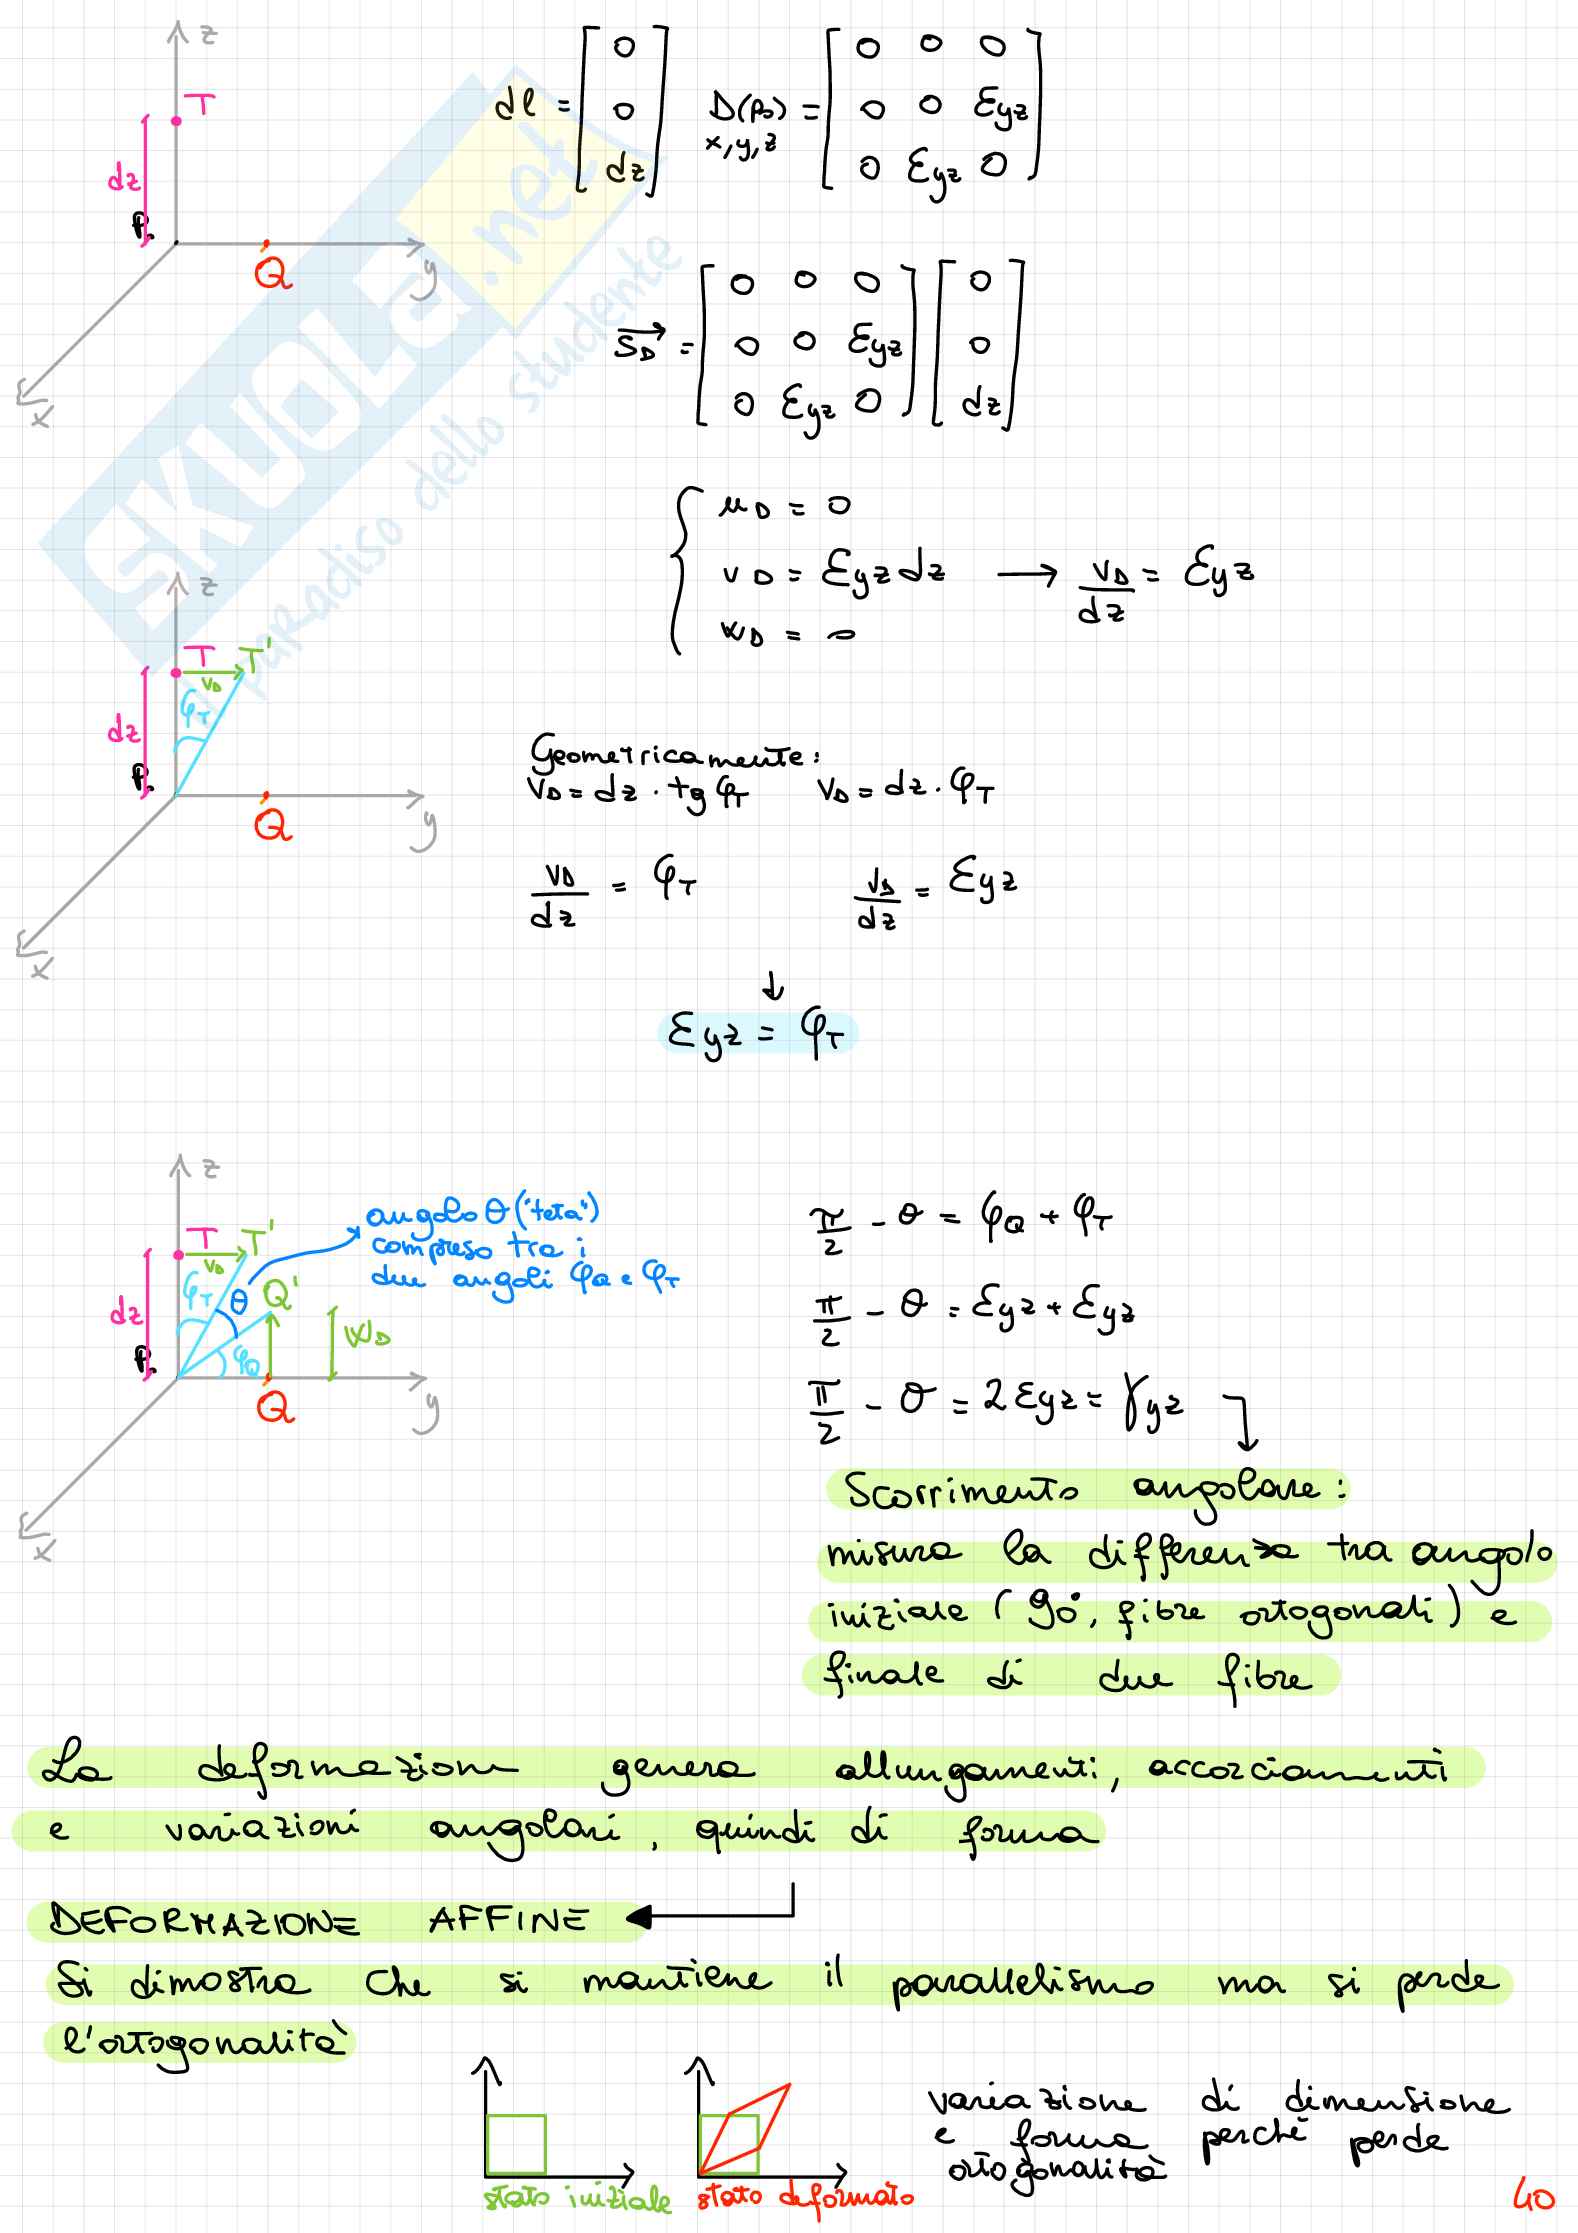 z
T
dz
P₀
Q
y
x
dl = [0 0 dz]
D(P₀) x,y,z = [0 0 0; 0 0 Ɛyz; 0 Ɛyz 0]
SKUOLA.net
il paradiso dello studente
S_D = [0 0 0; 0 0 Ɛyz; 0 Ɛyz 0] [0 0 dz]
u_D = 0
v_D = Ɛyz dz → v_D/dz = Ɛyz
w_D = 0
z
T T'
v_D
φ_T
dz
P₀
Q
y
x
Geometricamente:
v_D = dz · tg φ_T v_D = dz · φ_T
v_D/dz = φ_T v_D/dz = Ɛyz
↓
Ɛyz = φ_T
z
T T'
v_D
φ_T
θ
Q'
dz
w_D
P₀
φ_Q
Q
y
x
angolo θ ("teta")
compreso tra i
due angoli φ_Q e φ_T
π/2 - θ = φ_Q + φ_T
π/2 - θ = Ɛyz + Ɛyz
π/2 - θ = 2Ɛyz = γyz
Scorrimento angolare:
misura la differenza tra angolo
iniziale (90°, fibre ortogonali) e
finale di due fibre
La deformazione genera allungamenti, accorciamenti
e variazioni angolari, quindi di forma
DEFORMAZIONE AFFINE
Si dimostra che si mantiene il parallelismo ma si perde
l'ortogonalità
stato iniziale
stato deformato
variazione di dimensione
e forma perchè perde
ortogonalità
40